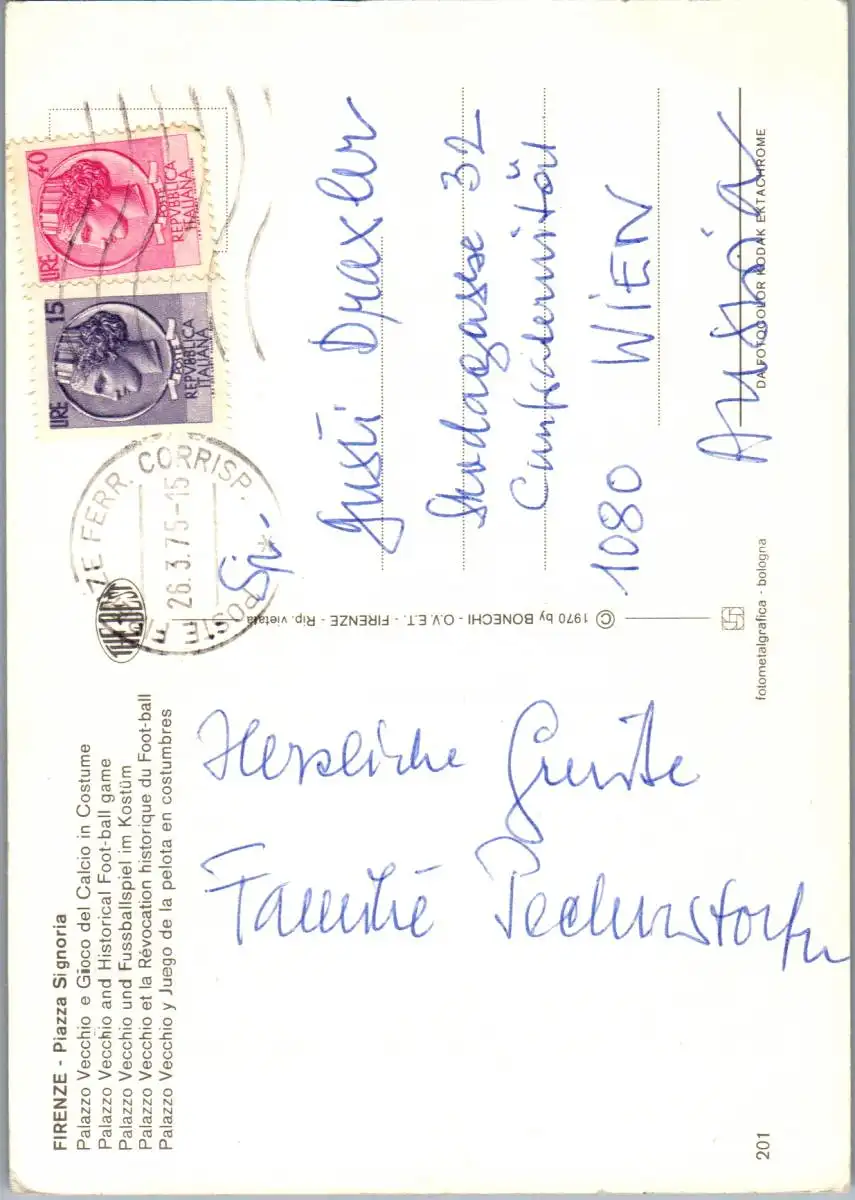 FIRENZE - Piazza Signoria
Palazzo Vecchio e Gioco del Calcio in Costume
Palazzo Vecchio and Historical Foot-ball game
Palazzo Vecchio und Fussballspiel im Kostüm
Palazzo Vecchio et la Révocation historique du Foot-ball
Palazzo Vecchio y Juego de la pelota en costumbres
Herzliche Grüße
Familie
201
THE BEST
© 1970 by BONECHI - O.V.E.T. - FIRENZE - Rip. vietata
fotometalgrafica - bologna
DA FOTOCOLOR KODAK EKTACHROME
LIRE 15
POSTE
REPVBBLICA
ITALIANA
LIRE 40
POSTE
REPVBBLICA
ITALIANA
POSTE FI ZE FERR. CORRISP.
26.3.75-15
Gusti Draxler
Skodagasse 32
Confraternität
1080 WIEN
Austria